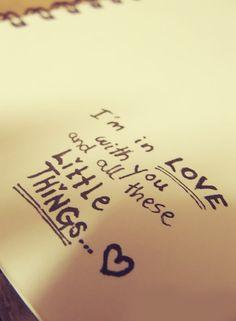 I'm in LOVE
with you
and all these
Little
THINGS... ♡